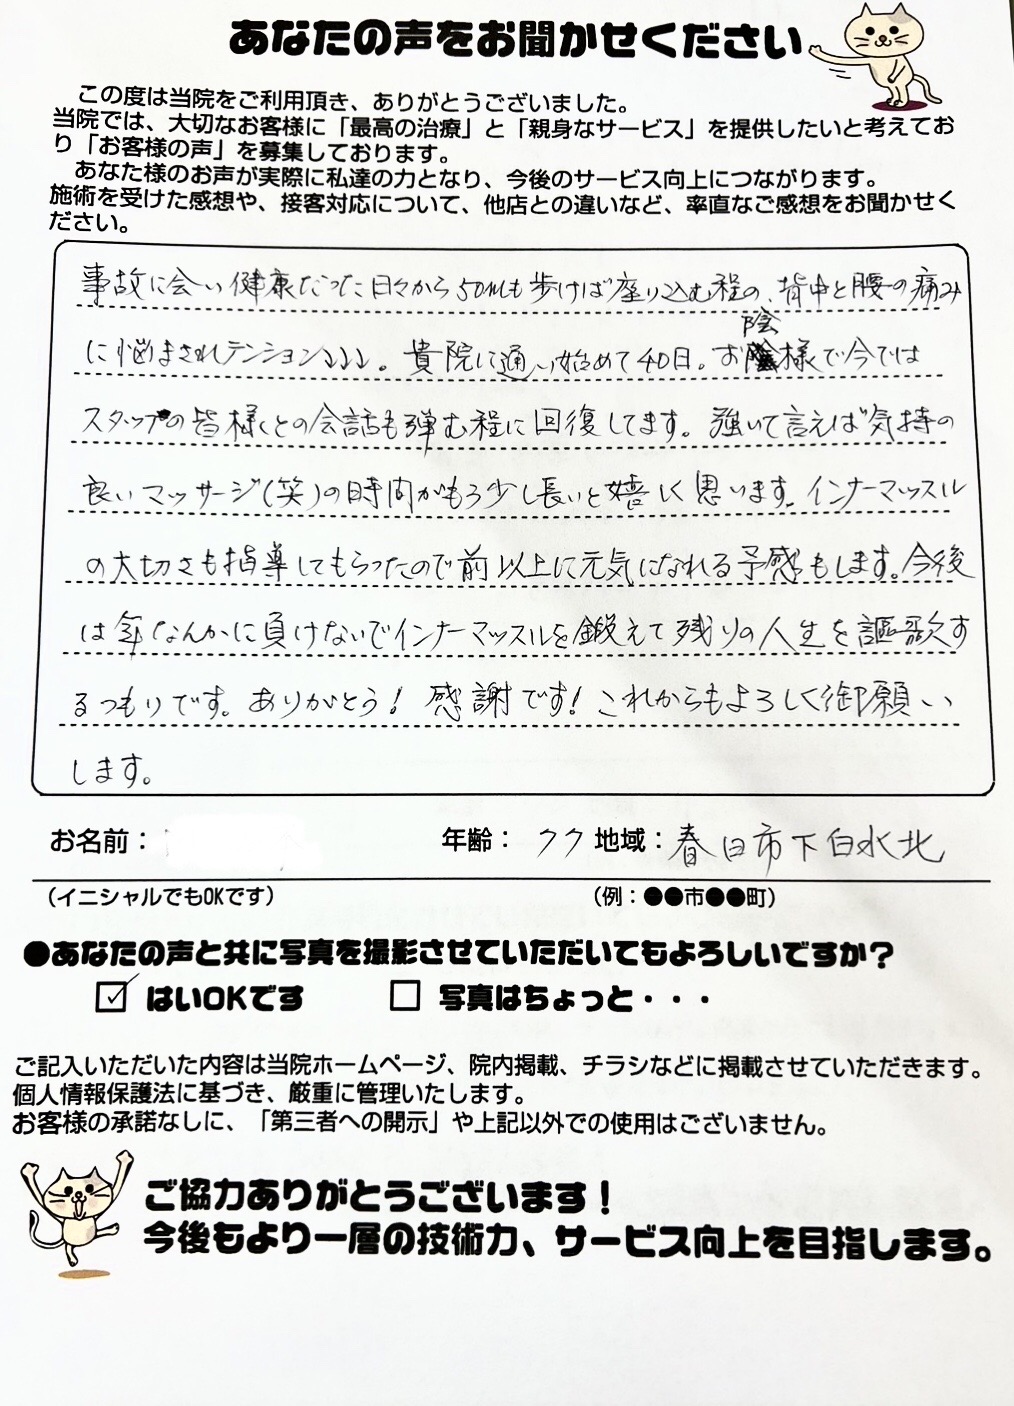 あなたの声をお聞かせください
この度は当院をご利用頂き、ありがとうございました。
当院では、大切なお客様に「最高の治療」と「親身なサービス」を提供したいと考えてお
り「お客様の声」を募集しております。
あなた様のお声が実際に私達の力となり、今後のサービス向上につながります。
施術を受けた感想や、接客対応について、他店との違いなど、率直なご感想をお聞かせく
ださい。
事故に会い健康だった日々から50mも歩けば座り込む程の、背中と腰の痛み
に悩まされテンション↓↓↓。貴院に通い始めて40日。お陰様で今では
スタッフの皆様との会話も弾む程に回復してます。強いて言えば気持の
良いマッサージ(笑)の時間がもう少し長いと嬉しく思います。インナーマッスル
の大切さも指導してもらったので前以上に元気になれる予感もします。今後
は年なんかに負けないでインナーマッスルを鍛えて残りの人生を謳歌す
るつもりです。ありがとう！感謝です！これからもよろしく御願い
します。
お名前：
年齢：77 地域：春日市下白水北
（イニシャルでもOKです）
（例：●●市●●町）
●あなたの声と共に写真を撮影させていただいてもよろしいですか？
☑ はいOKです □ 写真はちょっと・・・
ご記入いただいた内容は当院ホームページ、院内掲載、チラシなどに掲載させていただきます。
個人情報保護法に基づき、厳重に管理いたします。
お客様の承諾なしに、「第三者への開示」や上記以外での使用はございません。
ご協力ありがとうございます！
今後もより一層の技術力、サービス向上を目指します。